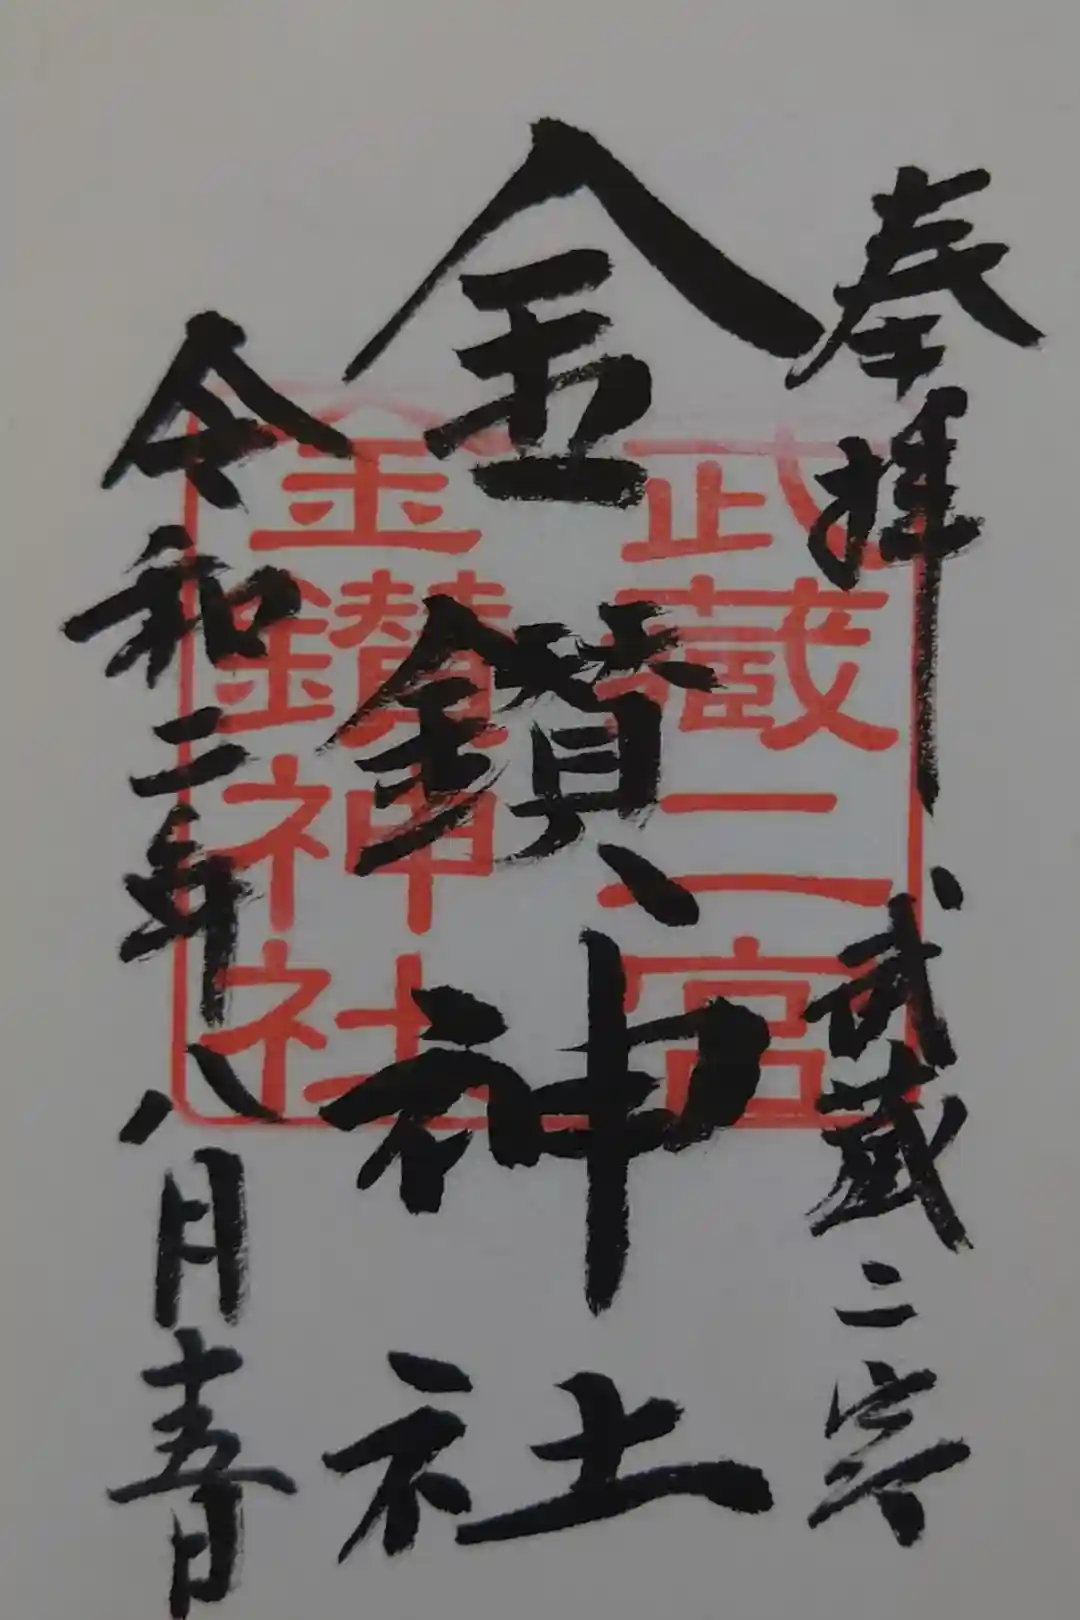 奉拝 武蔵二宮
金鑚神社
令和二年八月十五日
武蔵二宮
金鑚神社